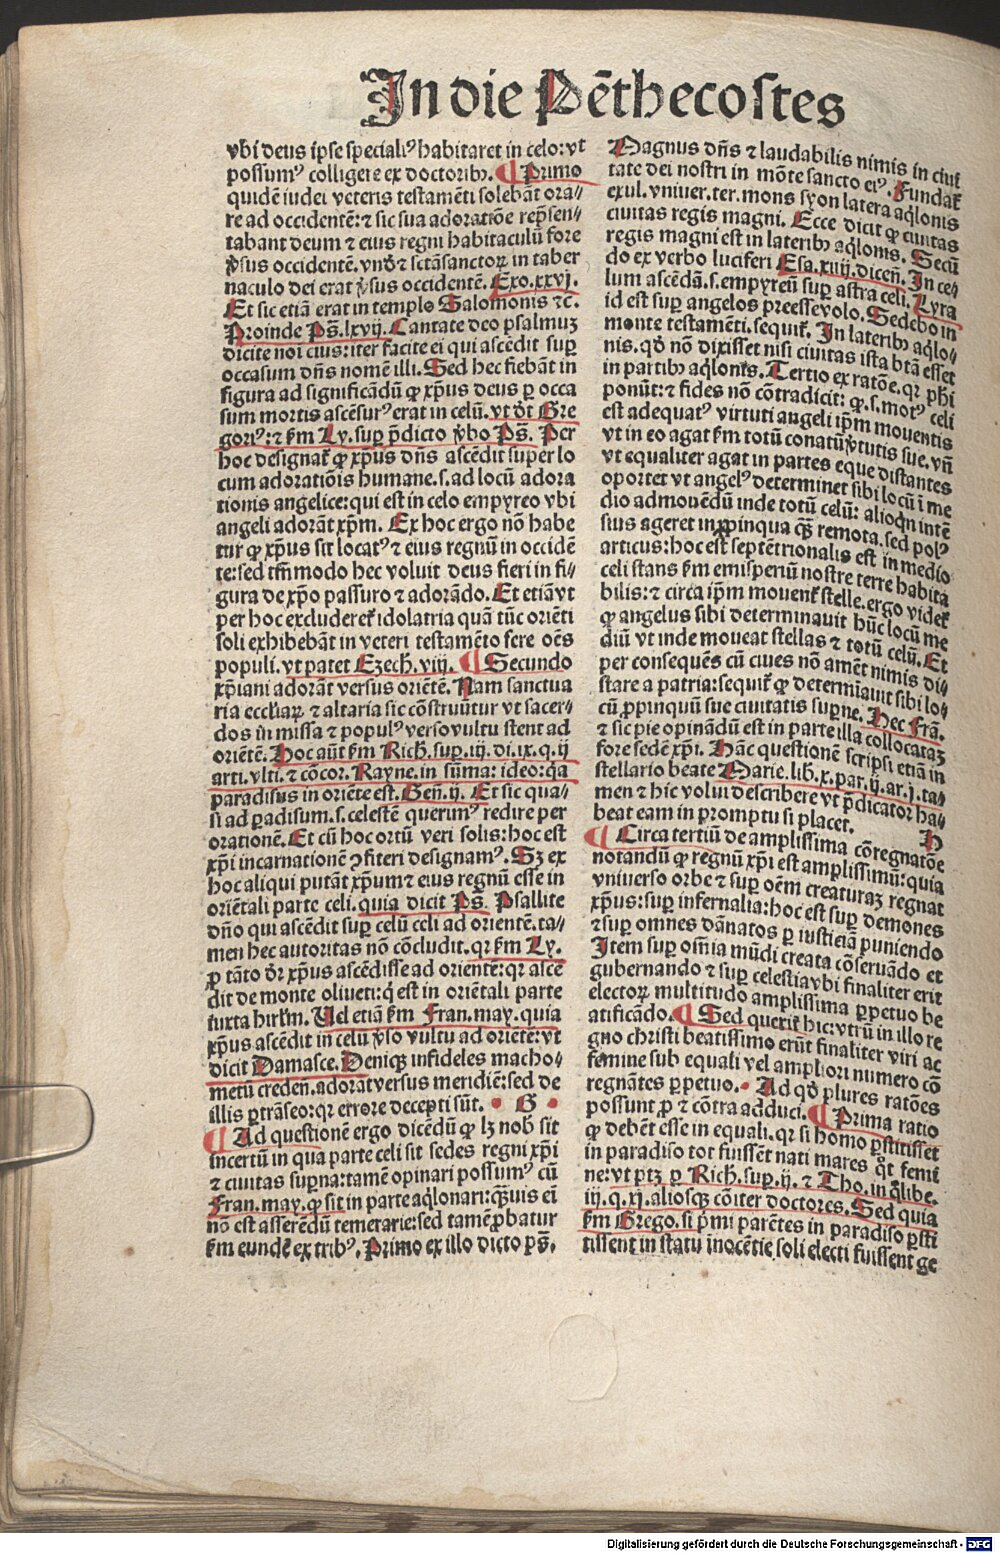 In die Pēthecostes
vbi deus ipse specialiꝰ habitaret in celo: vt
possumꝰ colligere ex doctoribꝫ. ¶ Primo
quidē iudei veteris testamēti solebāt ora⸗
re ad occidentē: ⁊ sic sua adoratiōe rep̄sen⸗
tabant deum ⁊ eius regni habitaculū fore
ꝟsus occidentē. vnō ⁊ sctāsanctoꝝ in taber
naculo dei erat ꝟsus occidentē. Exo. xxvj.
Et sic etiā erat in templo Salomonis ⁊c.
Proinde Ps̄. lxvij. Cantate deo psalmuꝫ
dicite noi eius: iter facite ei qui ascēdit suꝑ
occasum dn̄s nomē illi. Sed hec fiebāt in
figura ad significādū ꝙ xp̄us deus ꝑ occa
sum mortis ascēsurꝰ erat in celū. vt dō̄t Gre
goriꝰ: ⁊ ẜm Ly. suꝑ p̄dicto ꝟbo Ps̄. Per
hoc designat̄ ꝙ xp̄us dn̄s ascēdit super lo
cum adoratiōis humane. s. ad locū adora
tionis angelice: qui est in celo empyreo vbi
angeli adorāt xp̄m. Ex hoc ergo nō habe
tur ꝙ xp̄us sit locatꝰ ⁊ eius regnū in occidē
te: sed tm̄modo hec voluit deus fieri in fi⸗
gura de xp̄o passuro ⁊ adorādo. Et etiā vt
per hoc excluderet̄ idolatria quā tūc oriēti
soli exhibebāt in veteri testamēto fere oēs
populi. vt patet Ezech. viij. ¶ Secundo
xp̄iani adorāt versus oriētē. Nam sanctua
ria eccliaꝝ ⁊ altaria sic cōstruūtur vt sacer⸗
dos in missa ⁊ populꝰ verso vultu stent ad
oriētē. Hoc aūt ẜm Rich. suꝑ. iij. di. ix. q. ij
arti. vlti. ⁊ cōcor. Rayne. in sūma: ideo: q̄a
paradisus in oriēte est. Gen̄. ij. Et sic qua⸗
si ad ꝑadisum. s. celestē querimꝰ redire per
orationē. Et cū hoc ortū veri solis: hoc est
xp̄i incarnationē ꝯfiteri designamꝰ. Sꝫ ex
hoc aliqui putāt xp̄um ⁊ eius regnū esse in
oriētali parte celi. quia dicit Ps̄. Psallite
dn̄o qui ascēdit suꝑ celū celi ad orientē. ta⸗
men hec autoritas nō cōcludit. qr ẜm Ly.
ꝓ tāto dr̄ xp̄us ascēdisse ad orientē: qr ascē
dit de monte oliueti: q̄ est in oriētali parte
iuxta hirlm̄. Uel etiā ẜm Fran. may. quia
xp̄us ascēdit in celū ꝟso vultu ad oriētē: vt
dicit Damasce. Deniqꝫ infideles macho⸗
metū creden̄. adorāt versus meridiē: sed de
illis ꝑtrāseo: qr errore decepti sūt. • G •
¶ Ad questionē ergo dicēdū ꝙ lꝫ nob̄ sit
incertū in qua parte celi sit sedes regni xp̄i
⁊ ciuitas suꝑna: tamē opinari possumꝰ cū
Fran. may. ꝙ sit in parte aq̄lonari: q̄ꝫuis ei
nō est asserēdū temerarie: sed tamē ꝓbatur
ẜm eundē ex tribꝰ. Primo ex illo dicto ps̄.
Magnus dn̄s ⁊ laudabilis nimis in ciui
tate dei nostri in mōte sancto eiꝰ. Fundat̄
exul. vniuer. ter. mons syon latera aq̄lonis
ciuitas regis magni. Ecce dicit ꝙ ciuitas
regis magni est in lateribꝫ aq̄lonis. Secū
do ex verbo luciferi Esa. xiiij. dicen̄. In ce⸗
lum ascēdā. s. empyreū suꝑ astra celi. Lyra
id est suꝑ angelos preesse volo. Sedebo in
monte testamēti. sequit̄. In lateribꝫ aq̄lo⸗
nis. qd̄ nō dixisset nisi ciuitas ista btā esset
in partibꝫ aq̄lonis. Tertio ex ratōe. qr phi
ponūt: ⁊ fides nō cōtradicit: ꝙ. s. motꝰ celi
est adequatꝰ virtuti angeli ip̄m mouentis
vt in eo agat ẜm totū conatū ꝟtutis sue. vn̄
vt equaliter agat in partes eque distantes
oportet vt angelꝰ determinet sibi locū ī me
dio admouēdū inde totū celū: alioq̄n intē
sius ageret in ꝓpinqua q̄ꝫ remota. sed polꝰ
articus: hoc est septētrionalis est in medio
celi stans ẜm emisperiū nostre terre habita
bilis: ⁊ circa ip̄m mouent̄ stelle. ergo videt̄
ꝙ angelus sibi determinauit hūc locū me
diū vt inde moueat stellas ⁊ totū celū. Et
per consequēs cū ciues nō amēt nimis di⸗
stare a patria: sequit̄ ꝙ determīauit sibi lo⸗
cū ꝓpinquū sue ciuitatis suꝑne. Hec Frā.
⁊ sic pie opinādū est in parte illa collocataꝫ
fore sedē xp̄i. Hāc questionē scripsi etiā in
stellario beate Marie. lib. x. par. ij. ar. j. ta⸗
men ⁊ hic volui describere vt p̄dicator ha⸗
beat eam in promptu si placet. H
¶ Circa tertiū de amplissima cōregnatōe
notandū ꝙ regnū xp̄i est amplissimū: quia
vniuerso orbe ⁊ suꝑ oēm creaturaꝫ regnat
xp̄us: suꝑ infernalia: hoc est suꝑ demones
⁊ suꝑ omnes dānatos ꝑ iusticiā puniendo
Item suꝑ om̄ia mūdi creata cōseruādo et
gubernando ⁊ suꝑ celestia vbi finaliter erit
electoꝝ multitudo amplissima ꝑpetuo be
atificādo. ¶ Sed querit̄ hic: vtrū in illo re
gno christi beatissimo erūt finaliter viri ac
femine sub equali vel ampliori numero cō
regnātes ꝑpetuo. • Ad qd̄ plures ratōes
possunt ꝓ ⁊ cōtra adduci. ¶ Prima ratio
ꝙ debēt esse in equali. qr si homo ꝑstitisset
in paradiso tot fuissēt nati mares qt̄ femi
ne: vt ptꝫ ꝑ Rich. suꝑ. ij. ⁊ Tho. in q̄libe.
iij. q. xj. aliosqꝫ cōiter doctores. Sed quia
ẜm Grego. si p̄mi parētes in paradiso ꝑsti
tissent in statu inocētie soli electi fuissent ge
Digitalisierung gefördert durch die Deutsche Forschungsgemeinschaft - DFG